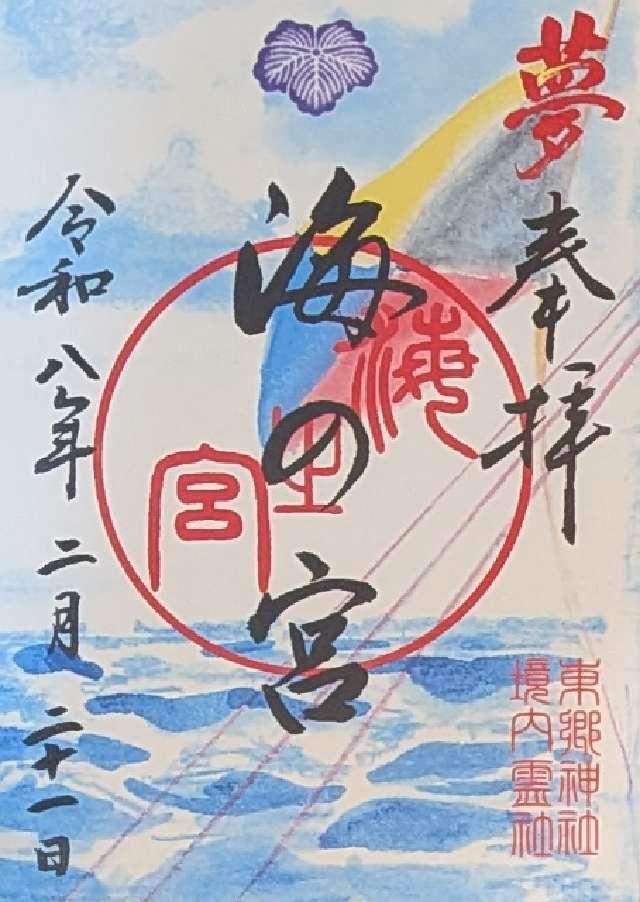 夢
奉拝
海の宮
海之宮
令和八年二月二十一日
東郷神社
境内霊社